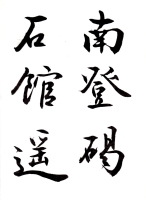 南登碣
石館遥